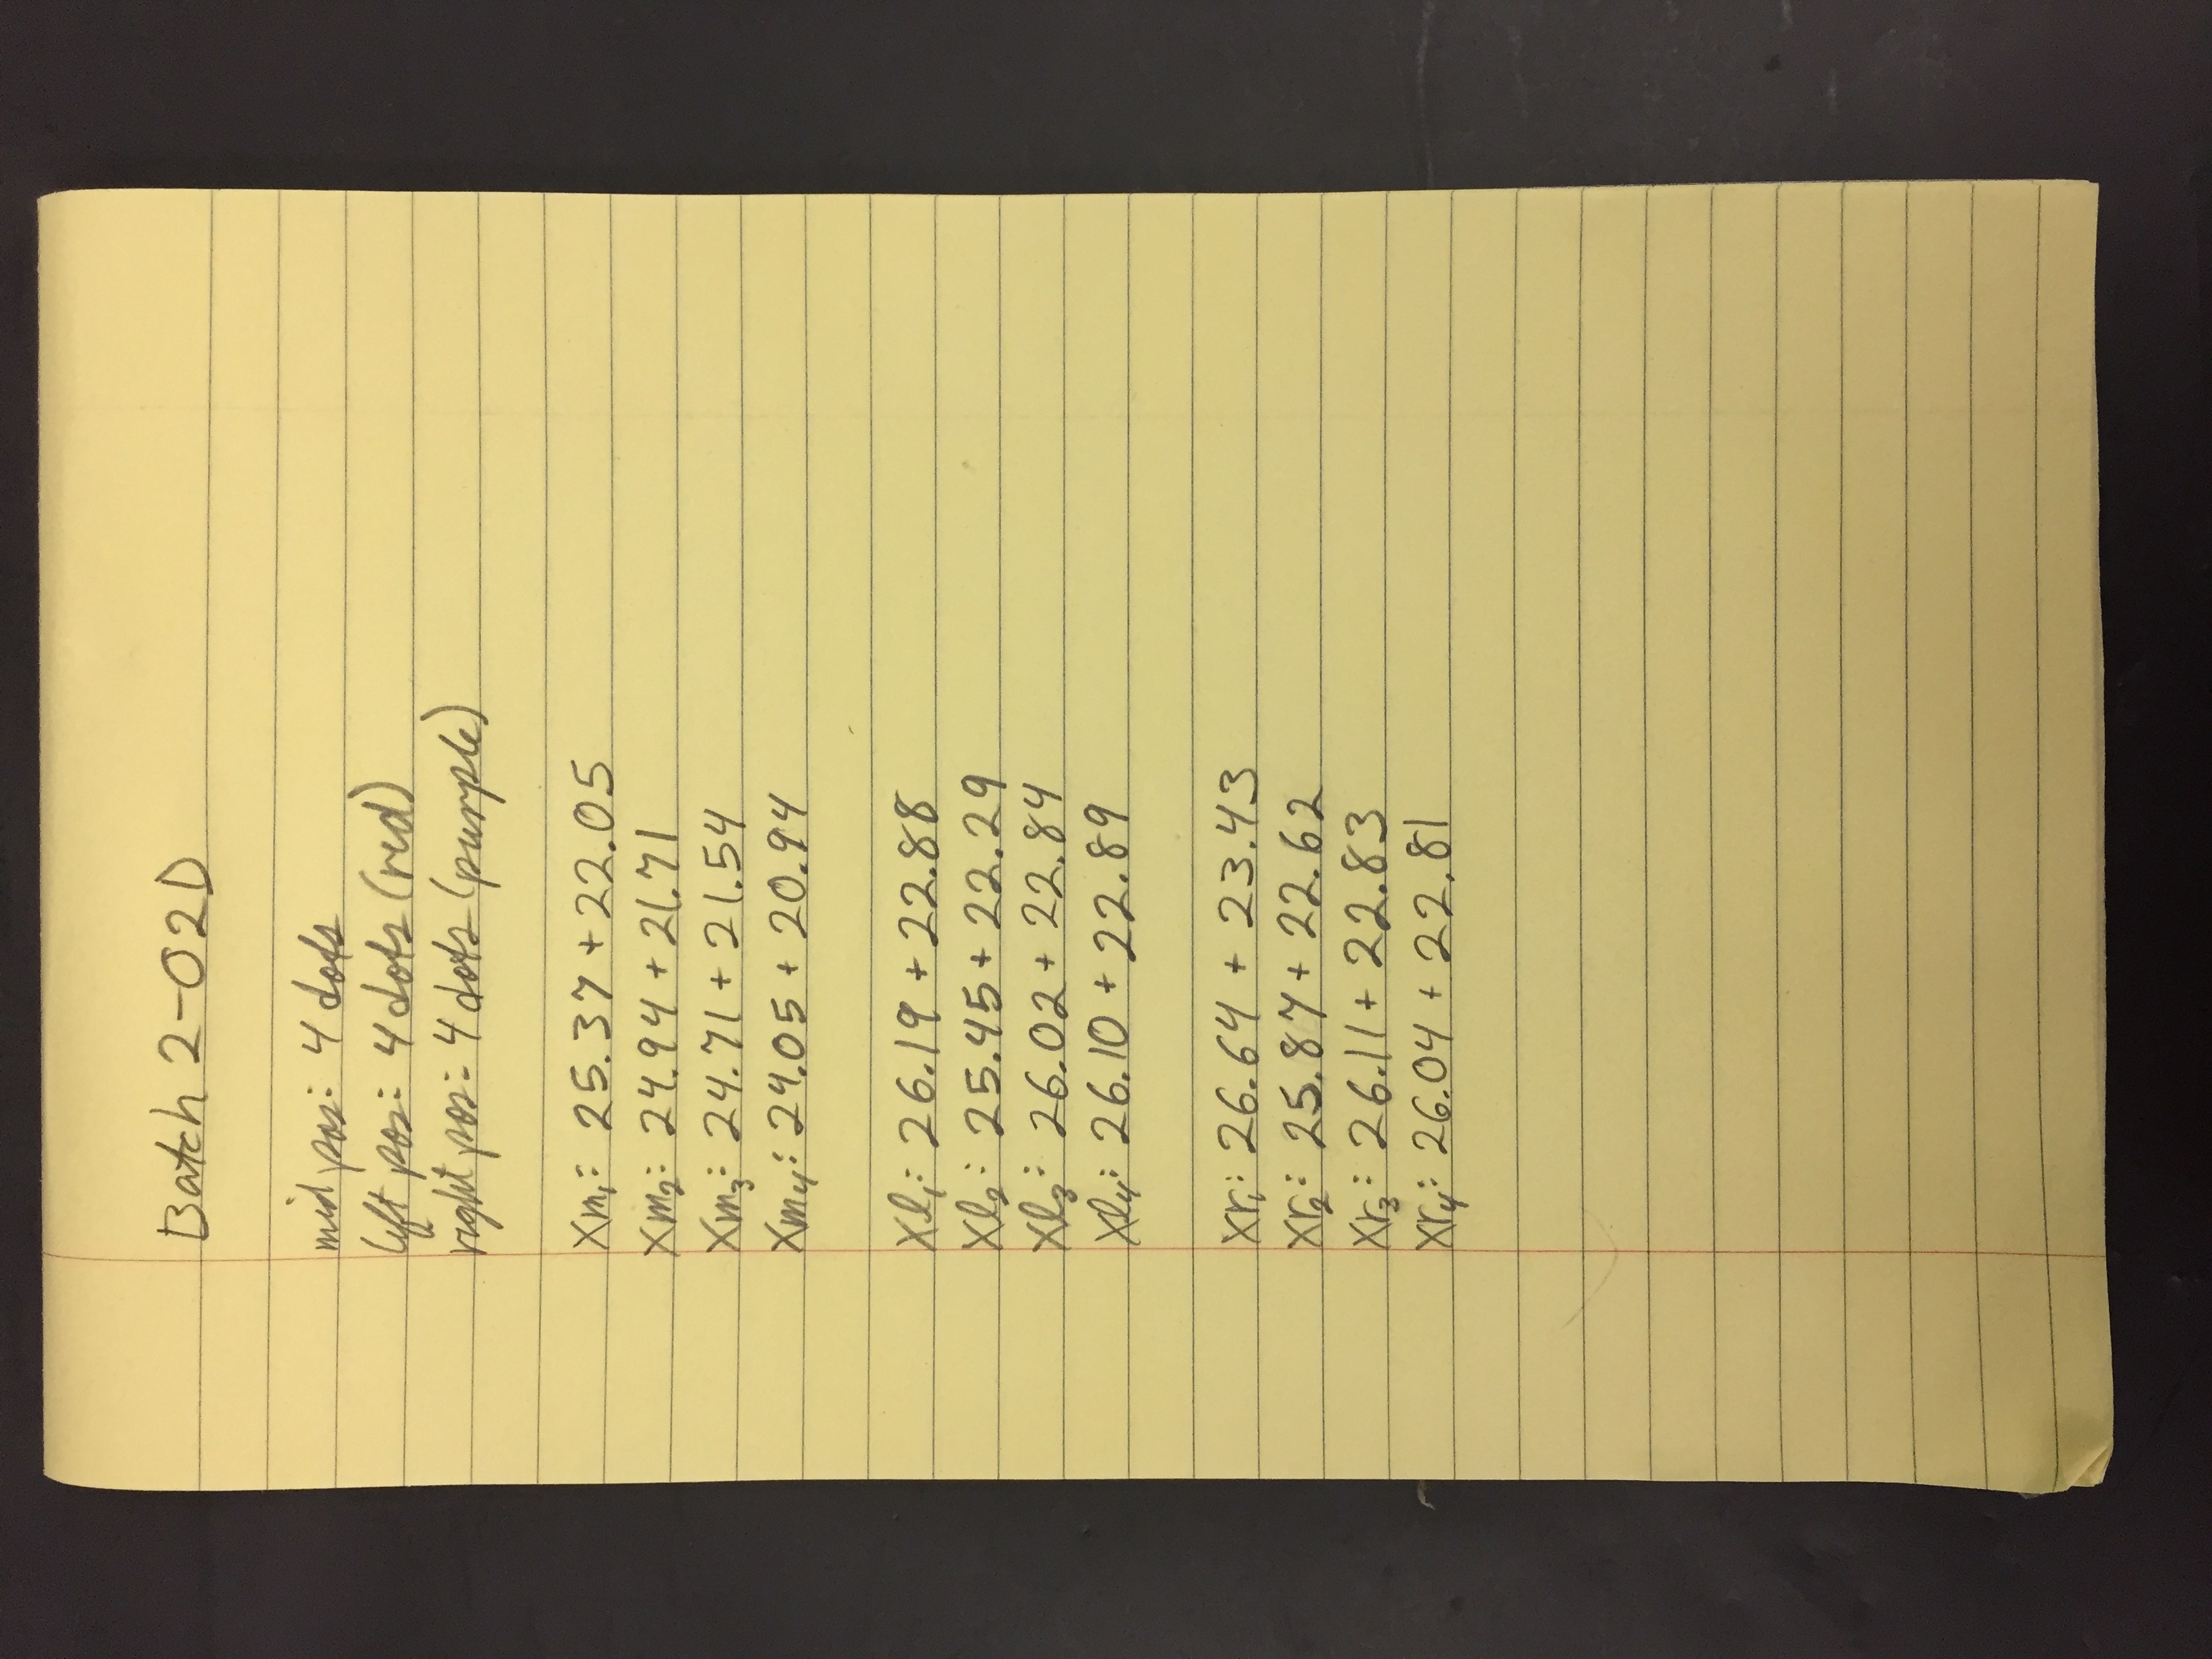 Batch 2-02D
mid pos: 4 dots
left pos: 4 dots (red)
right pos: 4 dots (purple)
Xm₁: 25.37 + 22.05
Xm₂: 24.94 + 21.71
Xm₃: 24.71 + 21.54
Xm₄: 24.05 + 20.94
Xl₁: 26.19 + 22.88
Xl₂: 25.45 + 22.29
Xl₃: 26.02 + 22.84
Xl₄: 26.10 + 22.89
Xr₁: 26.64 + 23.43
Xr₂: 25.87 + 22.62
Xr₃: 26.11 + 22.83
Xr₄: 26.04 + 22.81